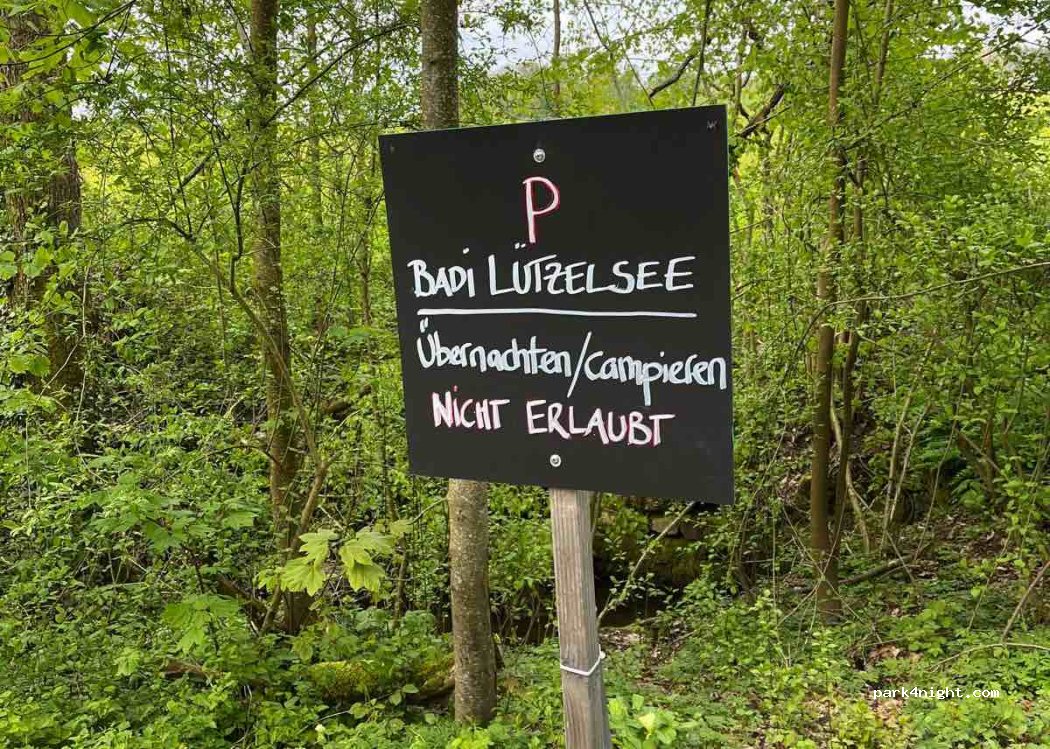 P
BADi LÜTZELSEE
Übernachten/campieren
NiCHT ERLAUBT
park4night.com